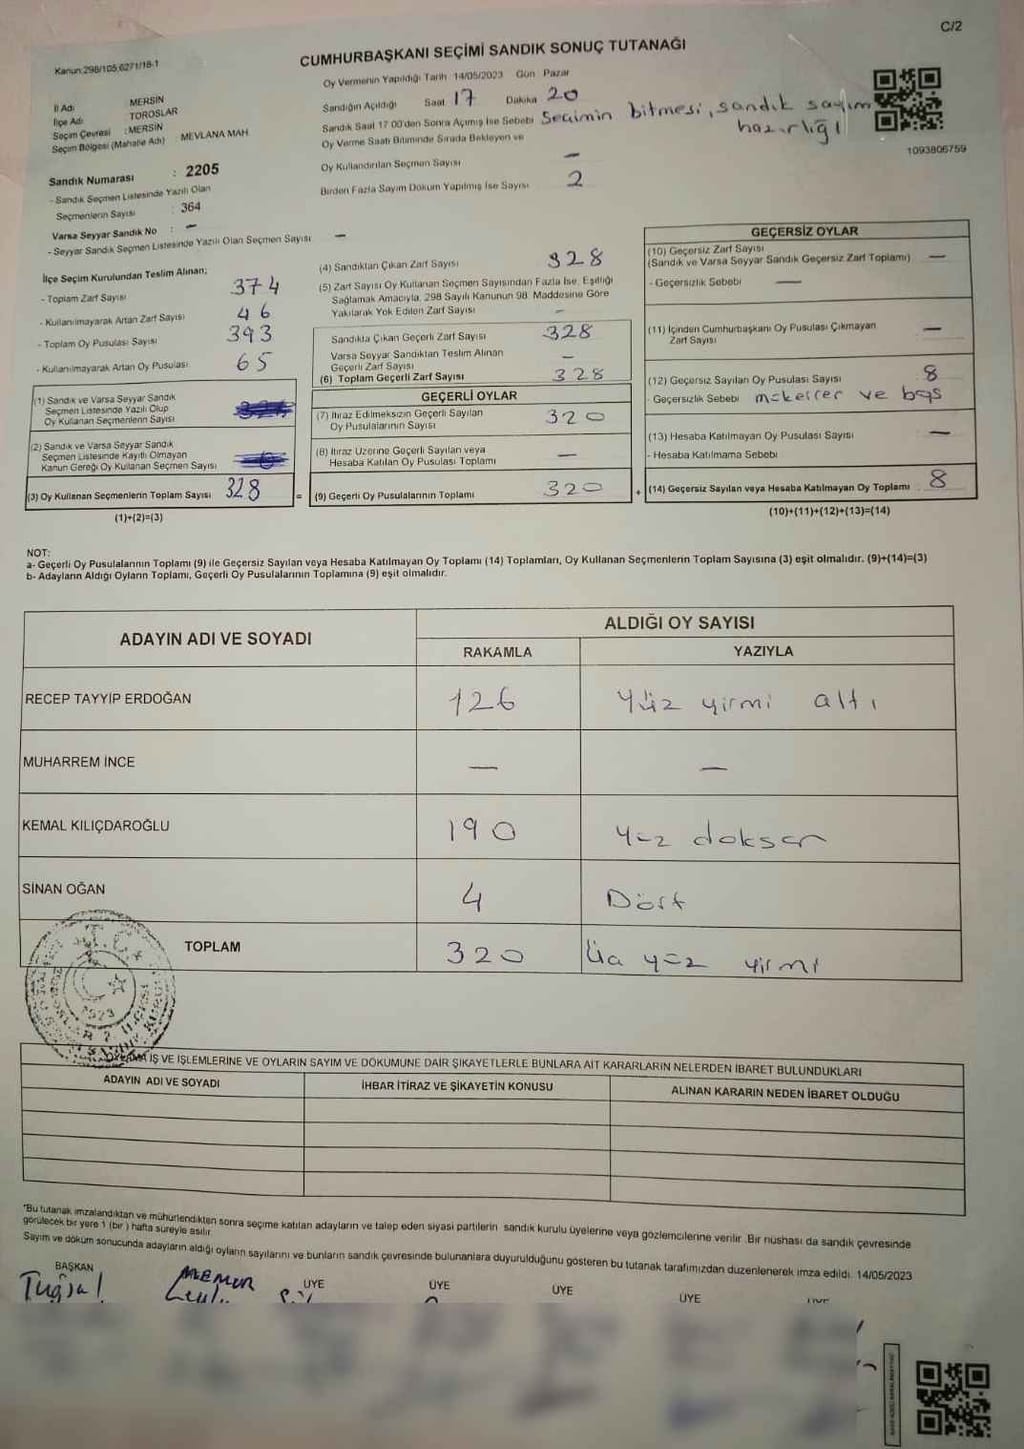 C/2
Kanun:298/105,6271/18-1
CUMHURBAŞKANI SEÇİMİ SANDIK SONUÇ TUTANAĞI
Oy Vermenin Yapıldığı Tarih 14/05/2023 Gün Pazar
İl Adı MERSİN
İlçe Adı TOROSLAR
Seçim Çevresi :MERSİN
Seçim Bölgesi (Mahalle Adı) : MEVLANA MAH.
Sandık Numarası : 2205
- Sandık Seçmen Listesinde Yazılı Olan
Seçmenlerin Sayısı : 364
Varsa Seyyar Sandık No : –
- Seyyar Sandık Seçmen Listesinde Yazılı Olan Seçmen Sayısı –
Sandığın Açıldığı Saat 17 Dakika 20
Sandık Saat 17.00'den Sonra Açımış İse Sebebi Seçimin bitmesi, sandık sayım
hazırlığı
Oy Verme Saati Bitiminde Sırada Bekleyen ve
Oy Kullandırılan Seçmen Sayısı –
Birden Fazla Sayım Döküm Yapılmış İse Sayısı 2
1093806759
İlçe Seçim Kurulundan Teslim Alınan;
- Toplam Zarf Sayısı 374
- Kullanılmayarak Artan Zarf Sayısı 46
- Toplam Oy Pusulası Sayısı 393
- Kullanılmayarak Artan Oy Pusulası 65
(1) Sandık ve Varsa Seyyar Sandık
Seçmen Listesinde Yazılı Olup
Oy Kullanan Seçmenlerin Sayısı
(2) Sandık ve Varsa Seyyar Sandık
Seçmen Listesinde Kayıtlı Olmayan
Kanun Gereği Oy Kullanan Seçmen Sayısı
(3) Oy Kullanan Seçmenlerin Toplam Sayısı 328 =
(1)+(2)=(3)
(4) Sandıktan Çıkan Zarf Sayısı 328
(5) Zarf Sayısı Oy Kullanan Seçmen Sayısından Fazla İse, Eşitliği
Sağlamak Amacıyla, 298 Sayılı Kanunun 98. Maddesine Göre
Yakılarak Yok Edilen Zarf Sayısı –
Sandıkta Çıkan Geçerli Zarf Sayısı 328
Varsa Seyyar Sandıktan Teslim Alınan
Geçerli Zarf Sayısı –
(6) Toplam Geçerli Zarf Sayısı 328
GEÇERLİ OYLAR
(7) İtiraz Edilmeksizin Geçerli Sayılan
Oy Pusulalarının Sayısı 320
(8) İtiraz Üzerine Geçerli Sayılan veya
Hesaba Katılan Oy Pusulası Toplamı –
(9) Geçerli Oy Pusulalarının Toplamı 320 +
GEÇERSİZ OYLAR
(10) Geçersiz Zarf Sayısı
(Sandık ve Varsa Seyyar Sandık Geçersiz Zarf Toplamı) –
- Geçersizlik Sebebi –
(11) İçinden Cumhurbaşkanı Oy Pusulası Çıkmayan
Zarf Sayısı –
(12) Geçersiz Sayılan Oy Pusulası Sayısı 8
- Geçersizlik Sebebi ve
(13) Hesaba Katılmayan Oy Pusulası Sayısı –
- Hesaba Katılmama Sebebi
(14) Geçersiz Sayılan veya Hesaba Katılmayan Oy Toplamı 8
(10)+(11)+(12)+(13)=(14)
NOT:
a- Geçerli Oy Pusulalarının Toplamı (9) ile Geçersiz Sayılan veya Hesaba Katılmayan Oy Toplamı (14) Toplamları, Oy Kullanan Seçmenlerin Toplam Sayısına (3) eşit olmalıdır. (9)+(14)=(3)
b- Adayların Aldığı Oyların Toplamı, Geçerli Oy Pusulalarının Toplamına (9) eşit olmalıdır.
ADAYIN ADI VE SOYADI
ALDIĞI OY SAYISI
RAKAMLA YAZIYLA
RECEP TAYYİP ERDOĞAN 126 Yüz yirmi altı
MUHARREM İNCE – –
KEMAL KILIÇDAROĞLU 190 Yüz doksan
SİNAN OĞAN 4 Dört
TOPLAM 320 Üç yüz yirmi
T.C.
İŞ VE İŞLEMLERİNE VE OYLARIN SAYIM VE DÖKÜMÜNE DAİR ŞİKAYETLERLE BUNLARA AİT KARARLARIN NELERDEN İBARET BULUNDUKLARI
ADAYIN ADI VE SOYADI İHBAR İTİRAZ VE ŞİKAYETİN KONUSU ALINAN KARARIN NEDEN İBARET OLDUĞU
*Bu tutanak imzalandıktan ve mühürlendikten sonra seçime katılan adayların ve talep eden siyasi partilerin sandık kurulu üyelerine veya gözlemcilerine verilir. Bir nüshası da sandık çevresinde
görülecek bir yere 1 (bir ) hafta süreyle asılır.
Sayım ve döküm sonucunda adayların aldığı oyların sayılarını ve bunların sandık çevresinde bulunanlara duyurulduğunu gösteren bu tutanak tarafımızdan düzenlenerek imza edildi. 14/05/2023
BAŞKAN MEMUR ÜYE ÜYE ÜYE ÜYE